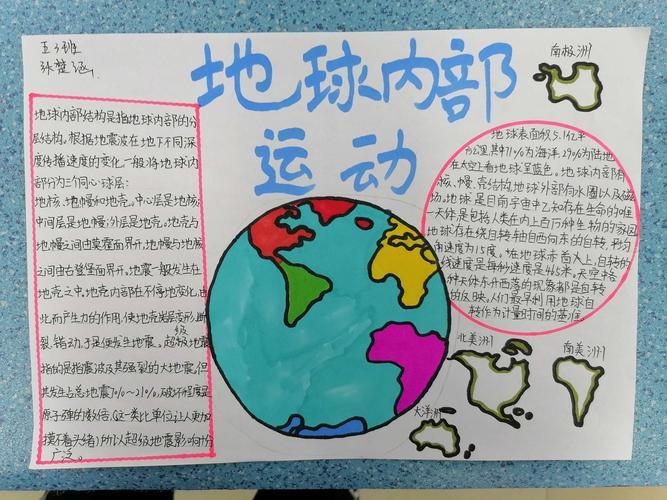 五3班
张楚涵
地球内部
运动
地球内部结构是指地球内部的分
层结构。根据地震波在地下不同深
度传播速度的变化一般将地球内
部分为三个同心球层:
地核、地幔和地壳。中心层是地核;
中间层是地幔;外层是地壳。地壳与
地幔之间由莫霍面界开,地幔与地核
之间由古登堡面界开。地震一般发生在
地壳之中。地壳内部在不停地变化,由
此而产生力的作用,使地壳岩层变形、断
裂、错动,于是便发生地震。超级地震
指的是指震波及其强烈的大地震。但
其发生占总地震7%~21%,破坏程度是
原子弹的数倍,(这一类比单位让人更加
摸不着头绪)所以超级地震影响十分
广泛。
南极洲
地球表面积5.1亿平
方公里,其中71%为海洋,29%为陆地
在太空上看地球呈蓝色。地球内部有
核、幔、壳结构,地球外部有水圈以及磁
场。地球是目前宇宙中已知存在生命的唯一
天体,是包括人类在内上百万种生物的家园
地球存在绕自转轴自西向东的自转,平均
角速度为15度。在地球赤道上,自转的
线速度是每秒速度是465米。天空中各
种天体东升西落的现象都是自转
的反映,人们最早利用地球自
转作为计量时间的基准。
北美洲
南美洲
大洋洲